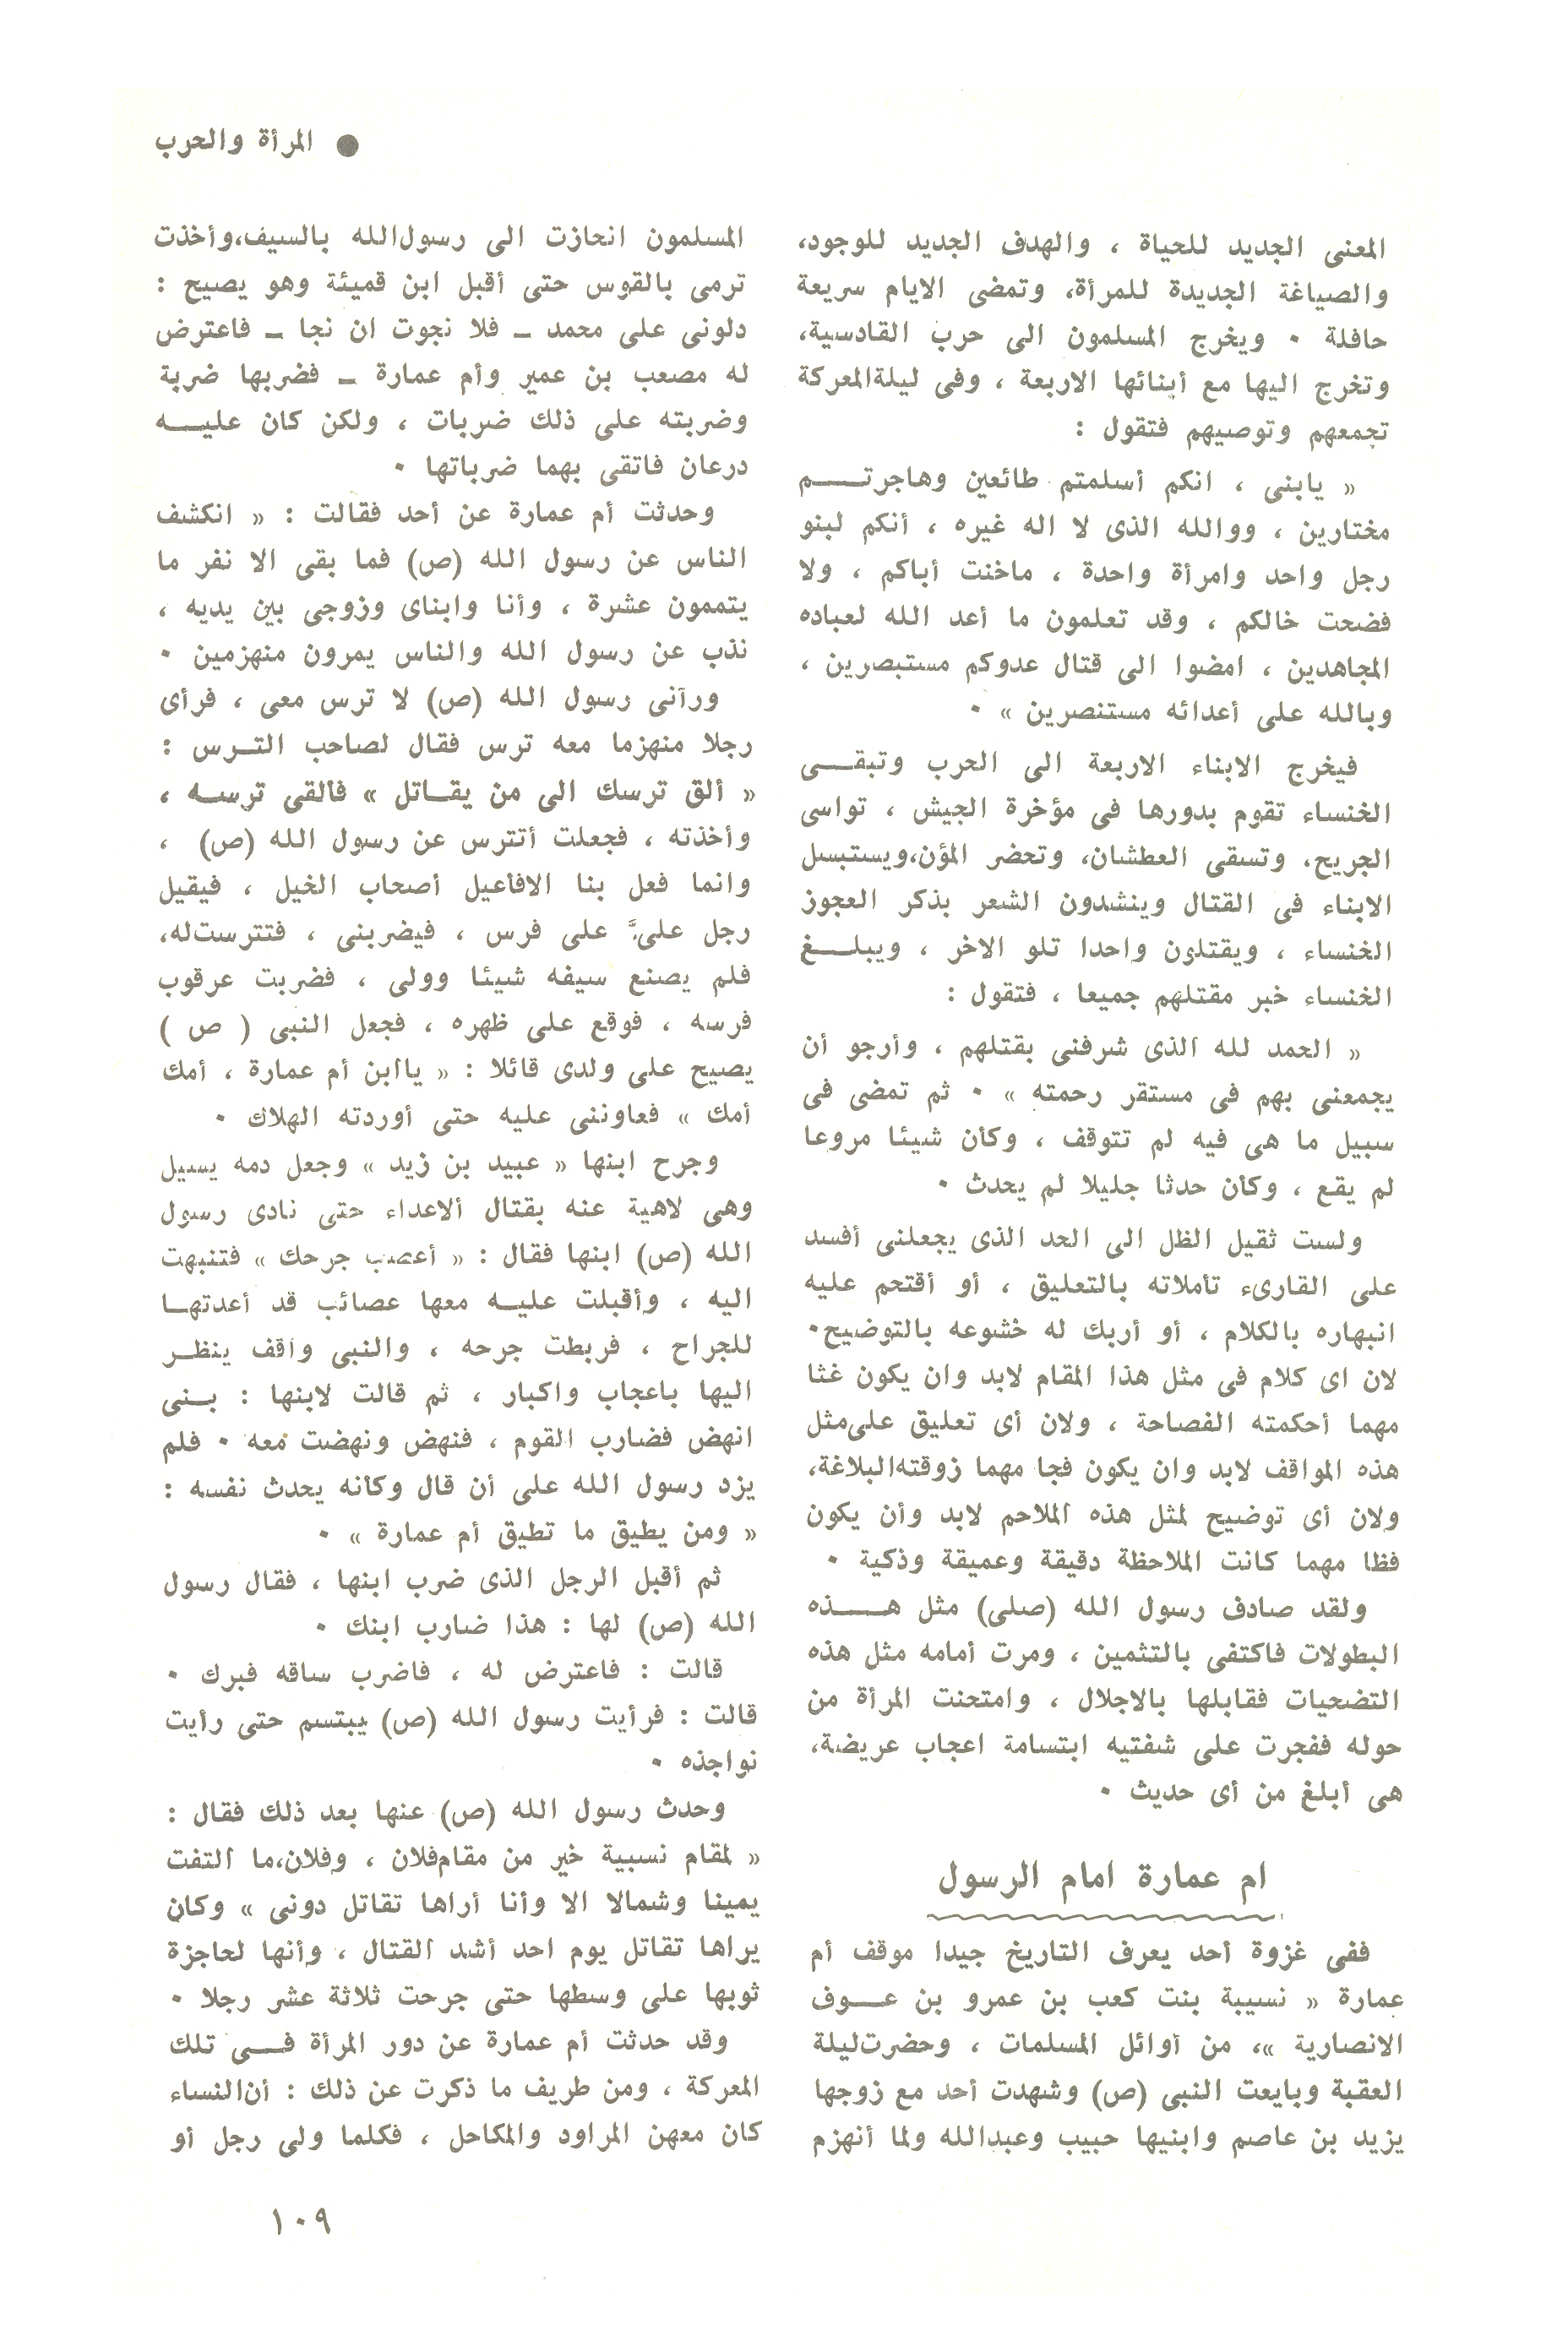 ● المرأة والحرب
المعنى الجديد للحياة ، والهدف الجديد للوجود،
والصياغة الجديدة للمرأة، وتمضى الايام سريعة
حافلة ٠ ويخرج المسلمون الى حرب القادسية،
وتخرج اليها مع أبنائها الاربعة ، وفى ليلةالمعركة
تجمعهم وتوصيهم فتقول :
« يابنى ، انكم أسلمتم طائعين وهاجرتـــم
مختارين ، ووالله الذى لا اله غيره ، أنكم لبنو
رجل واحد وامرأة واحدة ، ماخنت أباكم ، ولا
فضحت خالكم ، وقد تعلمون ما أعد الله لعباده
المجاهدين ، امضوا الى قتال عدوكم مستبصرين ،
وبالله على أعدائه مستنصرين » ٠
فيخرج الابناء الاربعة الى الحرب وتبقـــى
الخنساء تقوم بدورها فى مؤخرة الجيش ، تواسى
الجريح، وتسقى العطشان، وتحضر المؤن،ويستبسل
الابناء فى القتال وينشدون الشعر بذكر العجوز
الخنساء ، ويقتلون واحدا تلو الاخر ، ويبلـــغ
الخنساء خبر مقتلهم جميعا ، فتقول :
« الحمد لله الذى شرفنى بقتلهم ، وأرجو أن
يجمعنى بهم فى مستقر رحمته » ٠ ثم تمضى فى
سبيل ما هى فيه لم تتوقف ، وكأن شيئا مروعا
لم يقع ، وكأن حدثا جليلا لم يحدث ٠
ولست ثقيل الظل الى الحد الذى يجعلنى أفسد
على القارىء تأملاته بالتعليق ، أو أقتحم عليه
انبهاره بالكلام ، أو أربك له خشوعه بالتوضيح٠
لان اى كلام فى مثل هذا المقام لابد وان يكون غثا
مهما أحكمته الفصاحة ، ولان أى تعليق علىمثل
هذه المواقف لابد وان يكون فجا مهما زوقتهالبلاغة،
ولان أى توضيح لمثل هذه الملاحم لابد وأن يكون
فظا مهما كانت الملاحظة دقيقة وعميقة وذكية ٠
ولقد صادف رسول الله (صلى) مثل هـــذه
البطولات فاكتفى بالتثمين ، ومرت أمامه مثل هذه
التضحيات فقابلها بالاجلال ، وامتحنت المرأة من
حوله ففجرت على شفتيه ابتسامة اعجاب عريضة،
هى أبلغ من أى حديث ٠
ام عمارة امام الرسول
ففى غزوة أحد يعرف التاريخ جيدا موقف أم
عمارة « نسيبة بنت كعب بن عمرو بن عـــوف
الانصارية »، من أوائل المسلمات ، وحضرتليلة
العقبة وبايعت النبى (ص) وشهدت أحد مع زوجها
يزيد بن عاصم وابنيها حبيب وعبدالله ولما أنهزم
المسلمون انحازت الى رسولالله بالسيف،وأخذت
ترمى بالقوس حتى أقبل ابن قميئة وهو يصيح :
دلونى على محمد ــ فلا نجوت ان نجا ــ فاعترض
له مصعب بن عمير وأم عمارة ــ فضربها ضربة
وضربته على ذلك ضربات ، ولكن كان عليـــه
درعان فاتقى بهما ضرباتها ٠
وحدثت أم عمارة عن أحد فقالت : « انكشف
الناس عن رسول الله (ص) فما بقى الا نفر ما
يتممون عشرة ، وأنا وابناى وزوجى بين يديه ،
نذب عن رسول الله والناس يمرون منهزمين ٠
ورآنى رسول الله (ص) لا ترس معى ، فرأى
رجلا منهزما معه ترس فقال لصاحب التــرس :
« ألق ترسك الى من يقــاتل » فألقى ترســه ،
وأخذته ، فجعلت أتترس عن رسول الله (ص) ،
وانما فعل بنا الافأعيل أصحاب الخيل ، فيقيل
رجل علىَّ على فرس ، فيضربنى ، فتترستله،
فلم يصنع سيفه شيئا وولى ، فضربت عرقوب
فرسه ، فوقع على ظهره ، فجعل النبى ( ص )
يصيح على ولدى قائلا : « ياابن أم عمارة ، أمك
أمك » فعاوننى عليه حتى أوردته الهلاك ٠
وجرح ابنها « عبيد بن زيد » وجعل دمه يسيل
وهى لاهية عنه بقتال ألاعداء حتى نادى رسول
الله (ص) ابنها فقال : « أعصب جرحك » فتنبهت
اليه ، وأقبلت عليــه معها عصائب قد أعدتهــا
للجراح ، فربطت جرحه ، والنبى وأقف ينظــر
اليها باعجاب واكبار ، ثم قالت لابنها : بــنى
انهض فضارب القوم ، فنهض ونهضت معه ٠ فلم
يزد رسول الله على أن قال وكأنه يحدث نفسه :
« ومن يطيق ما تطيق أم عمارة » ٠
ثم أقبل الرجل الذى ضرب ابنها ، فقال رسول
الله (ص) لها : هذا ضارب ابنك ٠
قالت : فاعترض له ، فاضرب ساقه فبرك ٠
قالت : فرأيت رسول الله (ص) يبتسم حتى رأيت
نواجذه ٠
وحدث رسول الله (ص) عنها بعد ذلك فقال :
« لمقام نسبية خير من مقامفلان ، وفلان،ما التفت
يمينا وشمالا الا وأنا أراها تقاتل دونى » وكان
يراها تقاتل يوم احد أشد القتال ، وأنها لحاجزة
ثوبها على وسطها حتى جرحت ثلاثة عشر رجلا ٠
وقد حدثت أم عمارة عن دور المرأة فـــى تلك
المعركة ، ومن طريف ما ذكرت عن ذلك : أنالنساء
كان معهن المراود والمكاحل ، فكلما ولى رجل أو
١٠٩